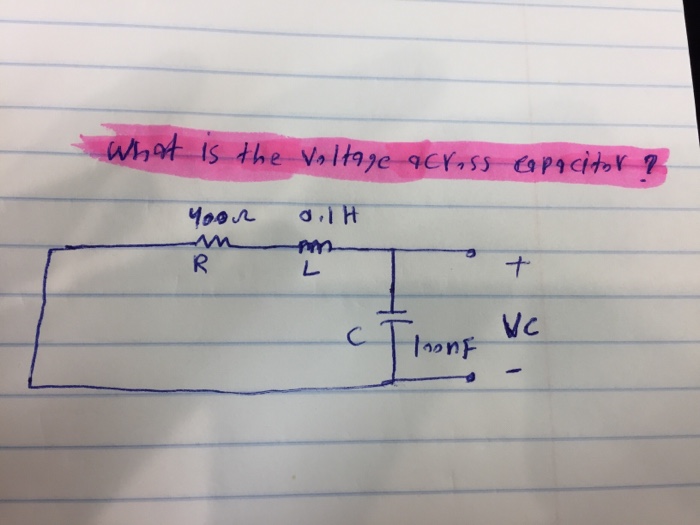 What is the Voltage across capacitor ?
400Ω 0.1H
R L +
C 100nF VC
-